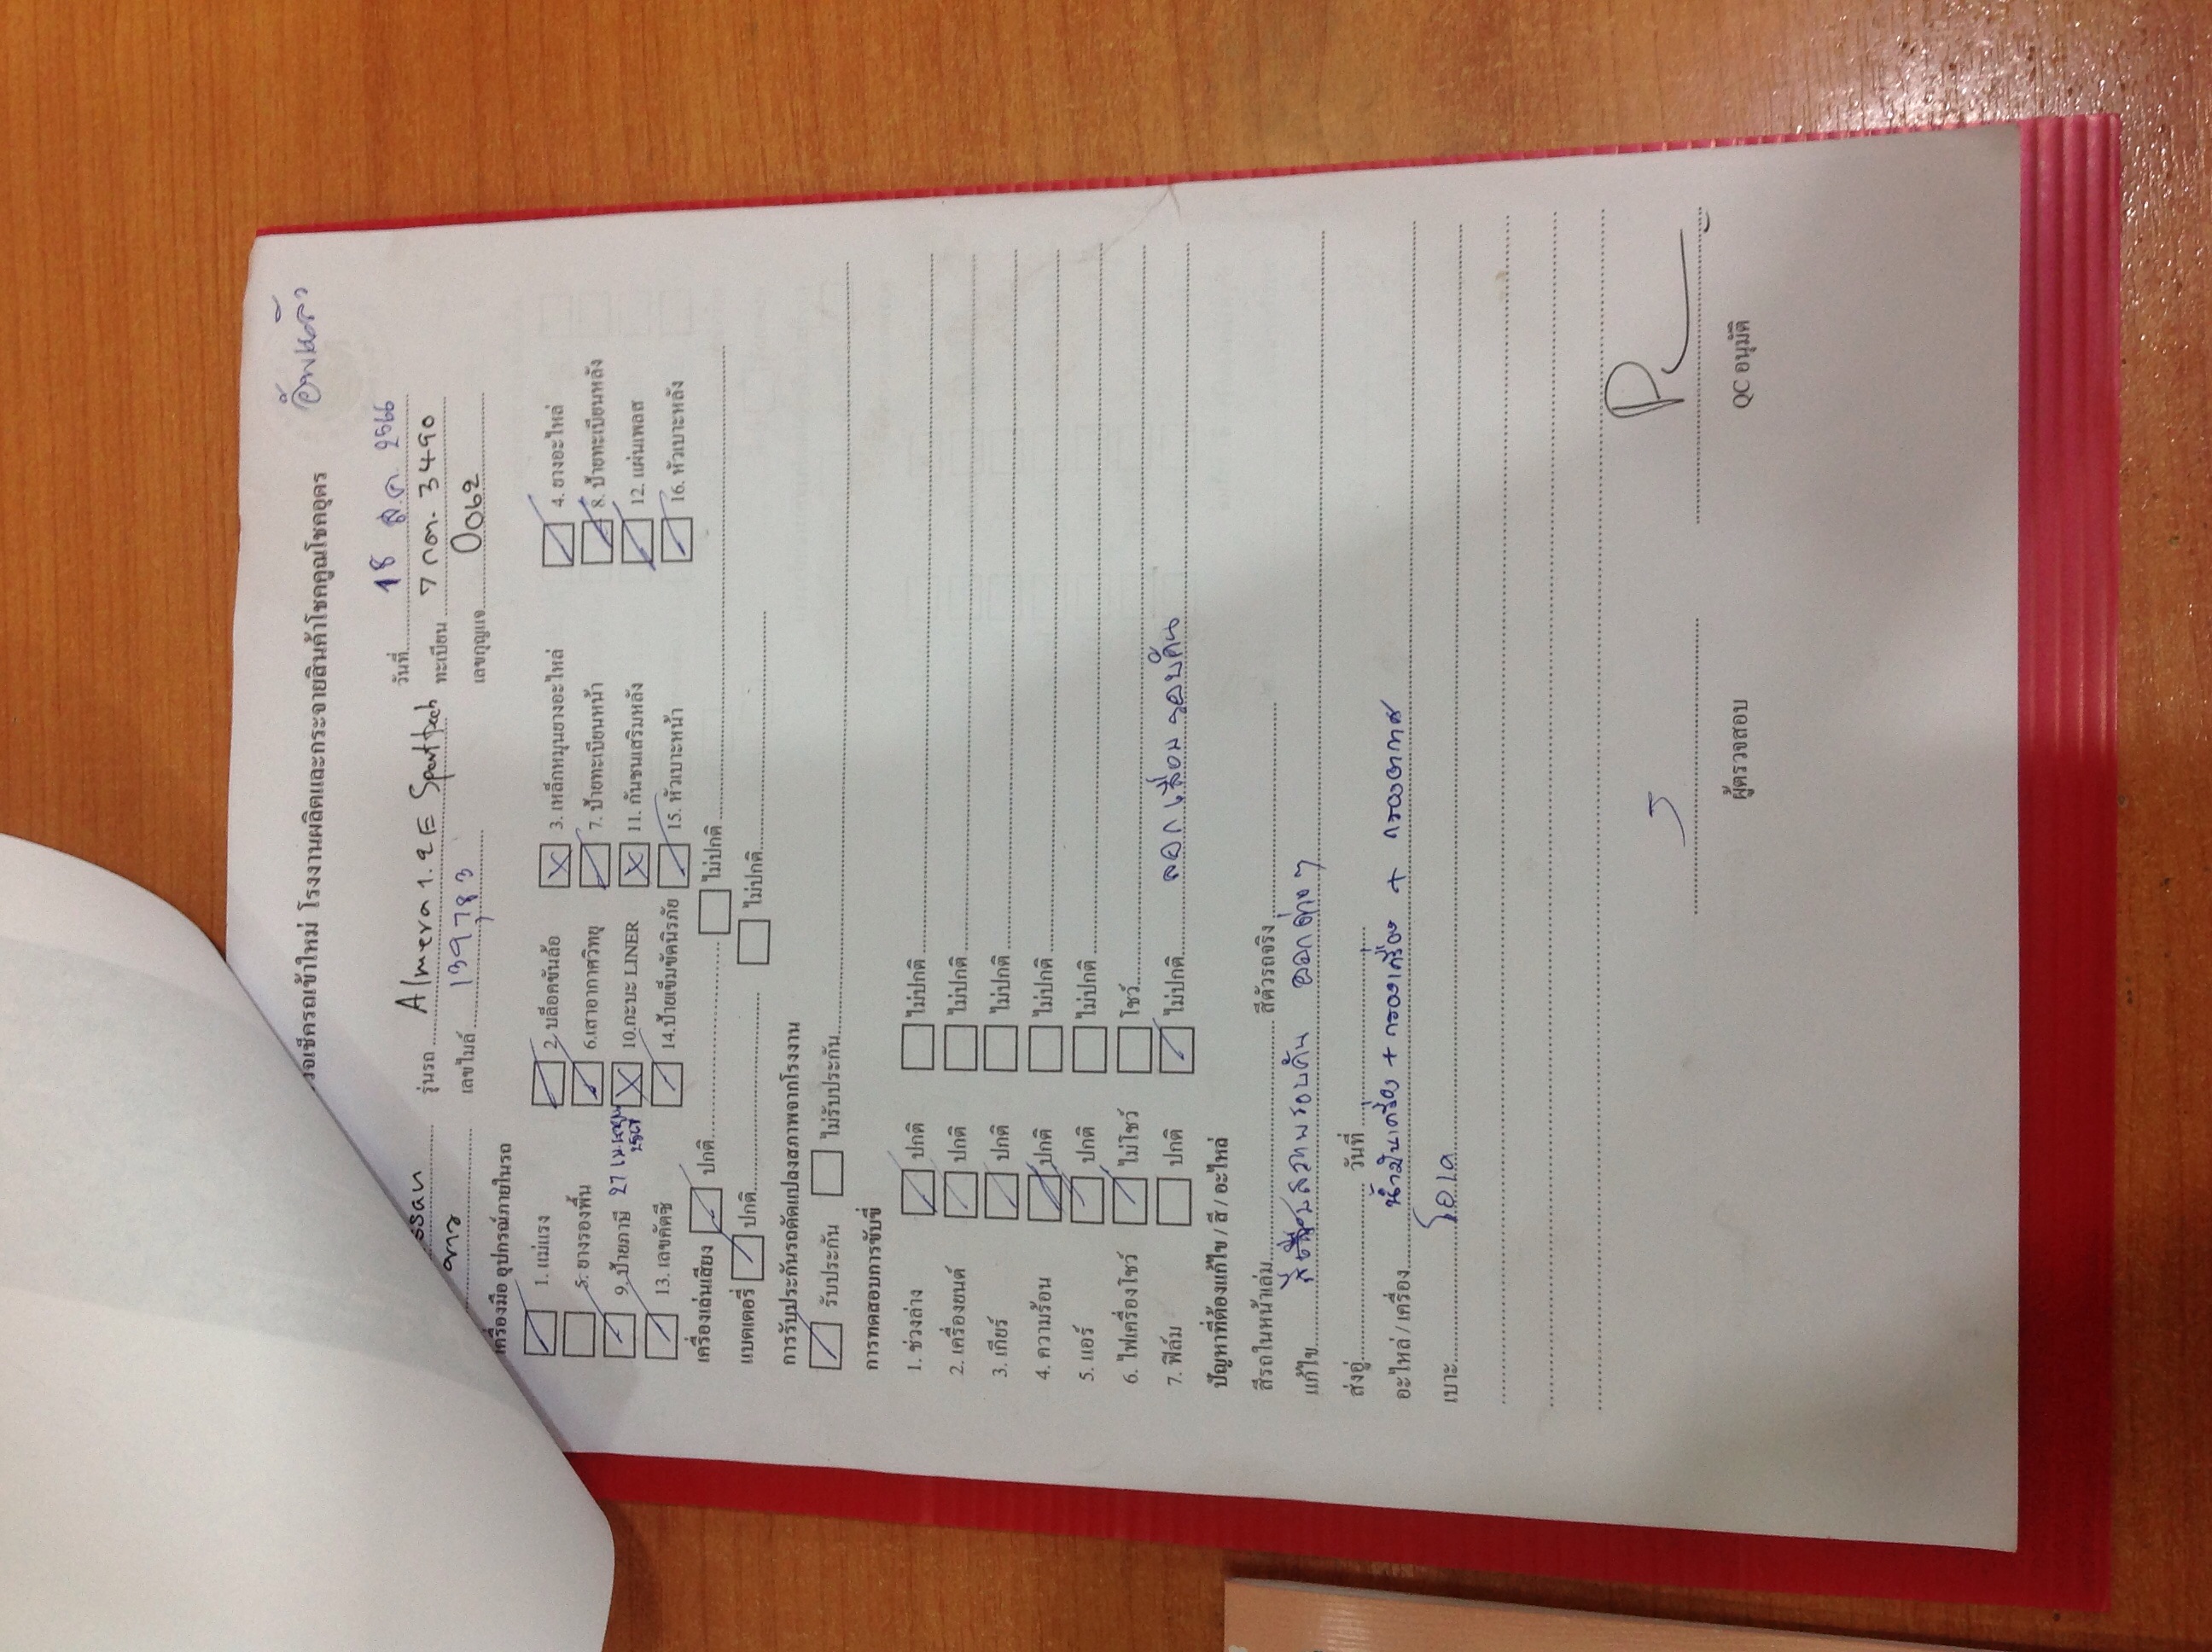 อัพแล้ว
วจเช็ครถเข้าใหม่ โรงงานผลิตและกระจายสินค้าโชคคูณโชคอุดร
วันที่ 18 ส.ค. 2566
ssan รุ่นรถ Almera 1.2 E Sportech ทะเบียน 7 กต. 3490
เลขไมล์ 139,783 เลขกุญแจ 0062
เครื่องมือ อุปกรณ์ภายในรถ
1. แม่แรง 2. บล็อคขันล้อ 3. เหล็กหมุนยางอะไหล่ 4. ยางอะไหล่
5. ยางรองพื้น 6.เสาอากาศวิทยุ 7. ป้ายทะเบียนหน้า 8. ป้ายทะเบียนหลัง
9. ป้ายภาษี 27 เมษายน 2567 10.กะบะ LINER 11. กันชนเสริมหลัง 12. แผ่นเพลส
13. เลขคัตซี 14.ป้ายเข็มขัดนิรภัย 15. หัวเบาะหน้า 16. หัวเบาะหลัง
เครื่องเล่นเสียง ปกติ ไม่ปกติ
แบตเตอรี่ ปกติ ไม่ปกติ
การรับประกันรถดัดแปลงสภาพจากโรงงาน
รับประกัน ไม่รับประกัน
การทดสอบการขับขี่
1. ช่วงล่าง ปกติ ไม่ปกติ
2. เครื่องยนต์ ปกติ ไม่ปกติ
3. เกียร์ ปกติ ไม่ปกติ
4. ความร้อน ปกติ ไม่ปกติ
5. แอร์ ปกติ ไม่ปกติ
6. ไฟเครื่องโชว์ ไม่โชว์ โชว์
7. ฟิล์ม ปกติ ไม่ปกติ ลอกเสื่อมรอบคัน
ปัญหาที่ต้องแก้ไข / สี / อะไหล่
สีรถในหน้าเล่ม สีตัวรถจริง
แก้ไข รอบคัน
ส่งอู่ วันที่
อะไหล่ / เครื่อง น้ำมันเครื่อง + กรองเครื่อง + กรองอากาศ
เบาะ โอเค
ผู้ตรวจสอบ QC อนุมัติ